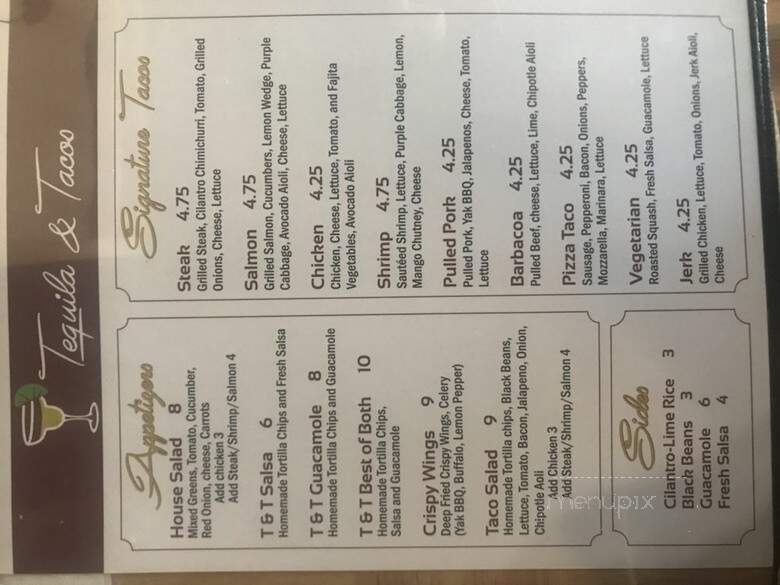 Tequila & Tacos
Appetizers
House Salad 8
Mixed Greens, Tomato, Cucumber,
Red Onion, cheese, Carrots
Add chicken 3
Add Steak/Shrimp/Salmon 4
T & T Salsa 6
Homemade Tortilla Chips and Fresh Salsa
T & T Guacamole 8
Homemade Tortilla Chips and Guacamole
T & T Best of Both 10
Homemade Tortilla Chips,
Salsa and Guacamole
Crispy Wings 9
Deep Fried Crispy Wings, Celery
(Yak BBQ, Buffalo, Lemon Pepper)
Taco Salad 9
Homemade Tortilla chips, Black Beans,
Lettuce, Tomato, Bacon, Jalapeno, Onion,
Chipotle Aoli
Add Chicken 3
Add Steak/Shrimp/Salmon 4
Sides
Cilantro-Lime Rice 3
Black Beans 3
Guacamole 6
Fresh Salsa 4
Signature Tacos
Steak 4.75
Grilled Steak, Cilantro Chimichurri, Tomato, Grilled
Onions, Cheese, Lettuce
Salmon 4.75
Grilled Salmon, Cucumbers, Lemon Wedge, Purple
Cabbage, Avocado Aloli, Cheese, Lettuce
Chicken 4.25
Chicken, Cheese, Lettuce, Tomato, and Fajita
Vegetables, Avocado Aloli
Shrimp 4.75
Sautéed Shrimp, Lettuce, Purple Cabbage, Lemon,
Mango Chutney, Cheese
Pulled Pork 4.25
Pulled Pork, Yak BBQ, Jalapenos, Cheese, Tomato,
Lettuce
Barbacoa 4.25
Pulled Beef, cheese, Lettuce, Lime, Chipotle Aloli
Pizza Taco 4.25
Sausage, Pepperoni, Bacon, Onions, Peppers,
Mozzarella, Marinara, Lettuce
Vegetarian 4.25
Roasted Squash, Fresh Salsa, Guacamole, Lettuce
Jerk 4.25
Grilled Chicken, Lettuce, Tomato, Onions, Jerk Aloli,
Cheese
menupix